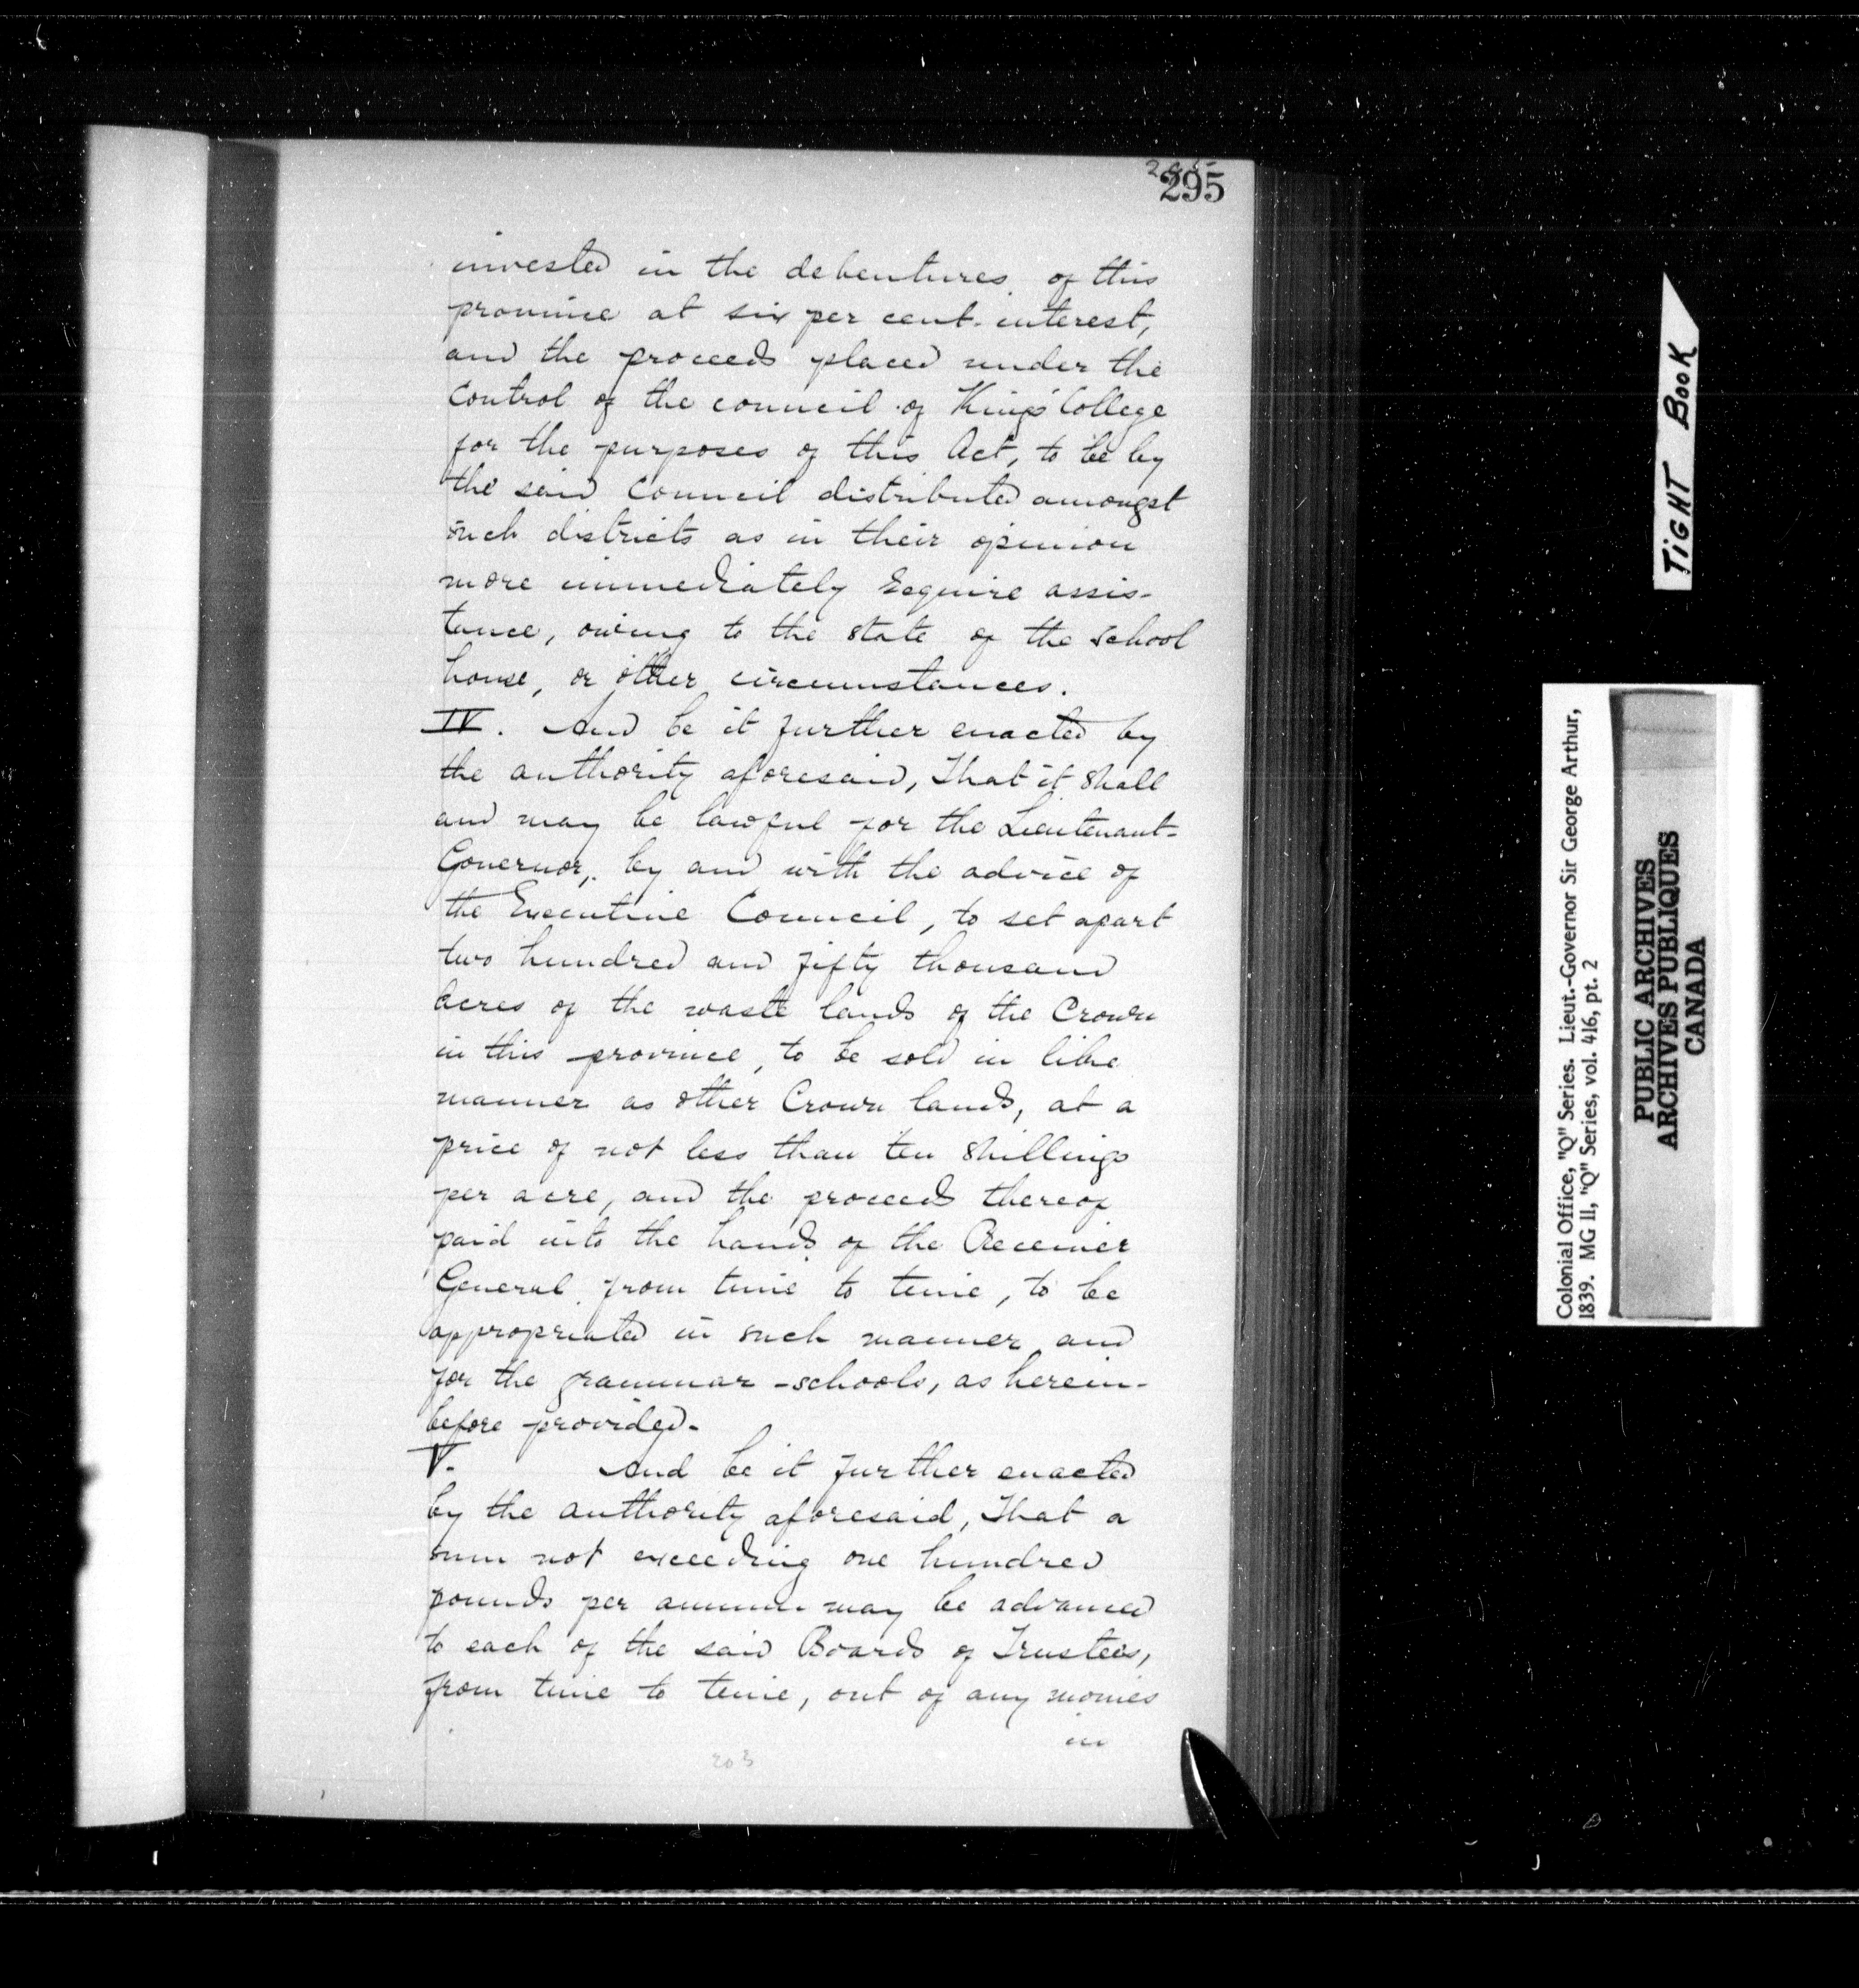 295
295
invested in the debentures of this
province at six per cent. interest,
and the proceeds placed under the
control of the council of King's College
for the purposes of this Act, to be by
the said Council distributed amongst
such districts as in their opinion
more immediately require assis-
tance, owing to the state of the school
house, or other circumstances.
IV. And be it further enacted by
the authority aforesaid, That it shall
and may be lawful for the Lieutenant-
Governor, by and with the advice of
the Executive Council, to set apart
two hundred and fifty thousand
acres of the waste lands of the Crown
in this province, to be sold in like
manner as other Crown lands, at a
price of not less than ten shillings
per acre, and the proceeds thereof
paid into the hands of the Receiver
General from time to time, to be
appropriated in such manner and
for the grammar-schools, as herein-
before provided.
V. And be it further enacted
by the authority aforesaid, That a
sum not exceeding one hundred
pounds per annum may be advanced
to each of the said Boards of Trustees,
from time to time, out of any monies
in
203
TIGHT BOOK
Colonial Office, "Q" Series. Lieut.-Governor Sir George Arthur,
1839. MG 11, "Q" Series, vol. 416, pt. 2
PUBLIC ARCHIVES
ARCHIVES PUBLIQUES
CANADA